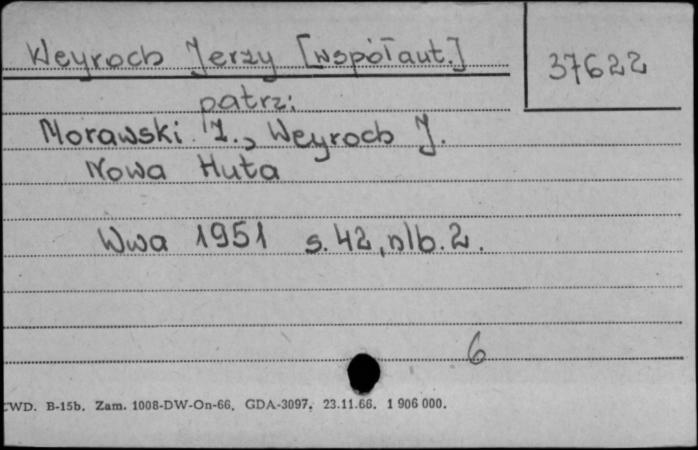 Weyroch Jerzy [współaut.]
37622
patrz:
Morawski I., Weyroch J.
Nowa Huta
Wwa 1951 s. 42, nlb. 2.
6
CWD. B-15b. Zam. 1008-DW-On-66. GDA-3097. 23.11.66. 1 906 000.